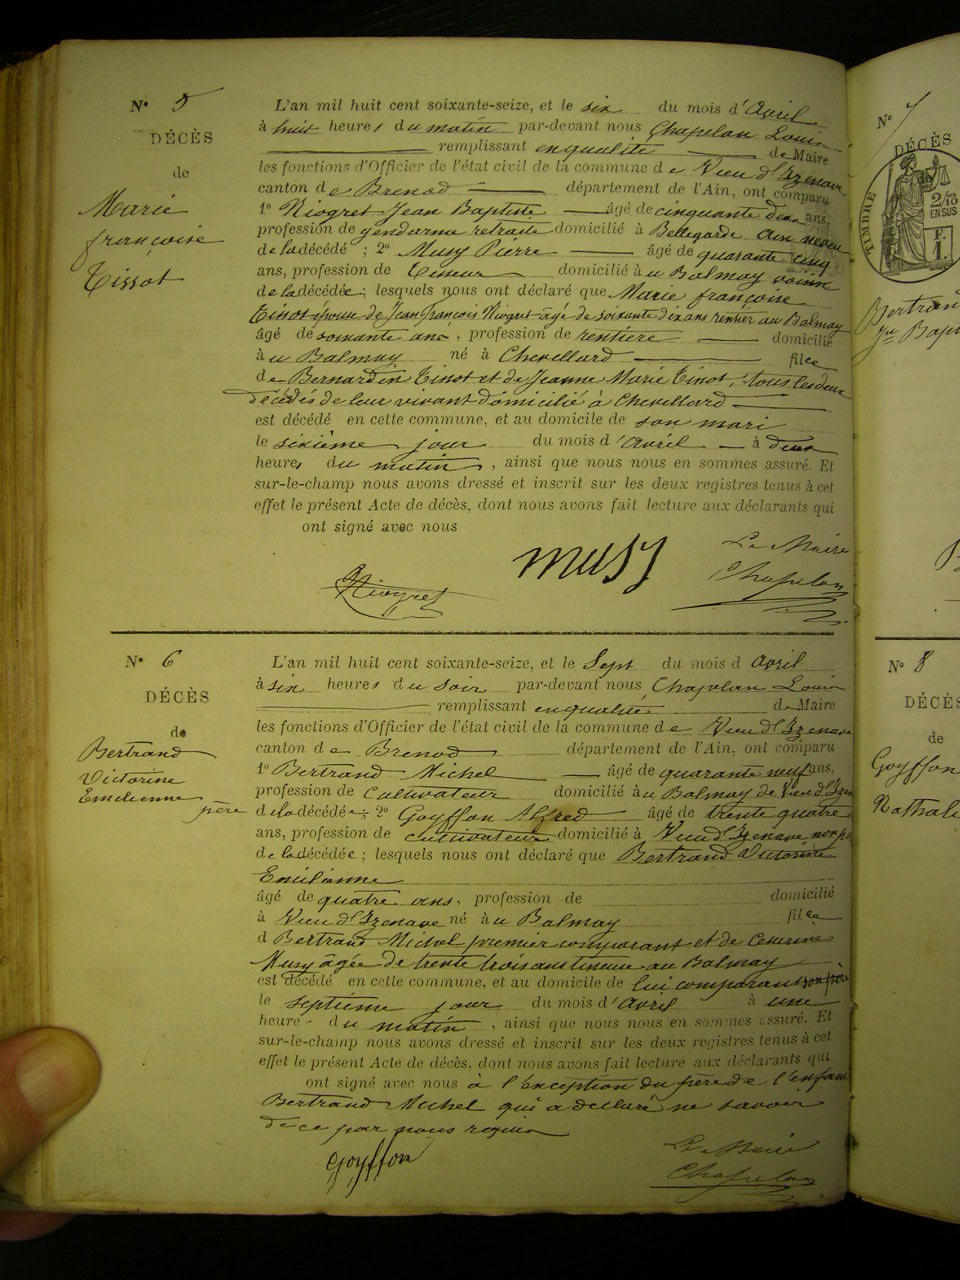 N° 5
DÉCÈS
de
Marie
françoise
Tissot
L'an mil huit cent soixante-seize, et le six du mois d'avril
à huit heures du matin par-devant nous Chapelan Louis
remplissant en qualité de Maire
les fonctions d'Officier de l'état civil de la commune de Vieu d'Izenave
canton de Brenod département de l'Ain, ont comparu
1° Niogret Jean Baptiste âgé de cinquante deux ans,
profession de gendarme retraité domicilié à Bellegarde Ain neveu
de la décédé ; 2° Musy Pierre âgé de quarante cinq
ans, profession de domicilié au Balmay voisin
de la décédée ; lesquels nous ont déclaré que Marie françoise
Tissot épouse de Jean françois Niogret âgé de soixante dix ans rentier au Balmay
âgé de soixante ans, profession de rentière domicilié
au Balmay né à Chevillard fille
de Bernardin Tissot et de Jeanne Marie Tissot, tous les deux
décédés de leur vivant domicilié à Chevillard
est décédé en cette commune, et au domicile de son mari
le sixième jour du mois d'avril à deux
heures du matin, ainsi que nous nous en sommes assuré. Et
sur-le-champ nous avons dressé et inscrit sur les deux registres tenus à cet
effet le présent Acte de décès, dont nous avons fait lecture aux déclarants qui
ont signé avec nous
Niogret
musy
Le Maire
Chapelan
N° 6
DÉCÈS
de
Bertrand
Victorine
Emilienne
L'an mil huit cent soixante-seize, et le Sept du mois d avril
à six heures du soir par-devant nous Chapelan Louis
remplissant en qualité de Maire
les fonctions d'Officier de l'état civil de la commune de Vieu d'Izenave
canton de Brenod département de l'Ain, ont comparu
1° Bertrand Michel âgé de quarante neuf ans,
profession de Cultivateur domicilié au Balmay de Vieu d'Izen
père de la décédée ; 2° Goyffon Alfred âgé de trente quatre
ans, profession de cultivateur domicilié à Vieu d'Izenave non p
de la décédée ; lesquels nous ont déclaré que Bertrand Victorine
Emilienne
âgé de quatre ans, profession de domicilié
à Vieu d'Izenave né au Balmay fille
d Bertrand Michel premier comparant et de
Musy âgée de trente trois ans au Balmay
est décédé en cette commune, et au domicile de lui comparant
le septième jour du mois d'avril à une
heure du matin, ainsi que nous nous en sommes assuré. Et
sur-le-champ nous avons dressé et inscrit sur les deux registres tenus à cet
effet le présent Acte de décès, dont nous avons fait lecture aux déclarants qui
ont signé avec nous à l'exception du père de l'enfant
Bertrand Michel qui a déclaré ne savoir
de ce par nous requis
Goyffon
Le Maire
Chapelan
N° 7
DÉCÈS
de
TIMBRE
2/10
EN SUS
F.
1.
Bertrand
N° 8
DÉCÈS
de
Goyffon
Nathali